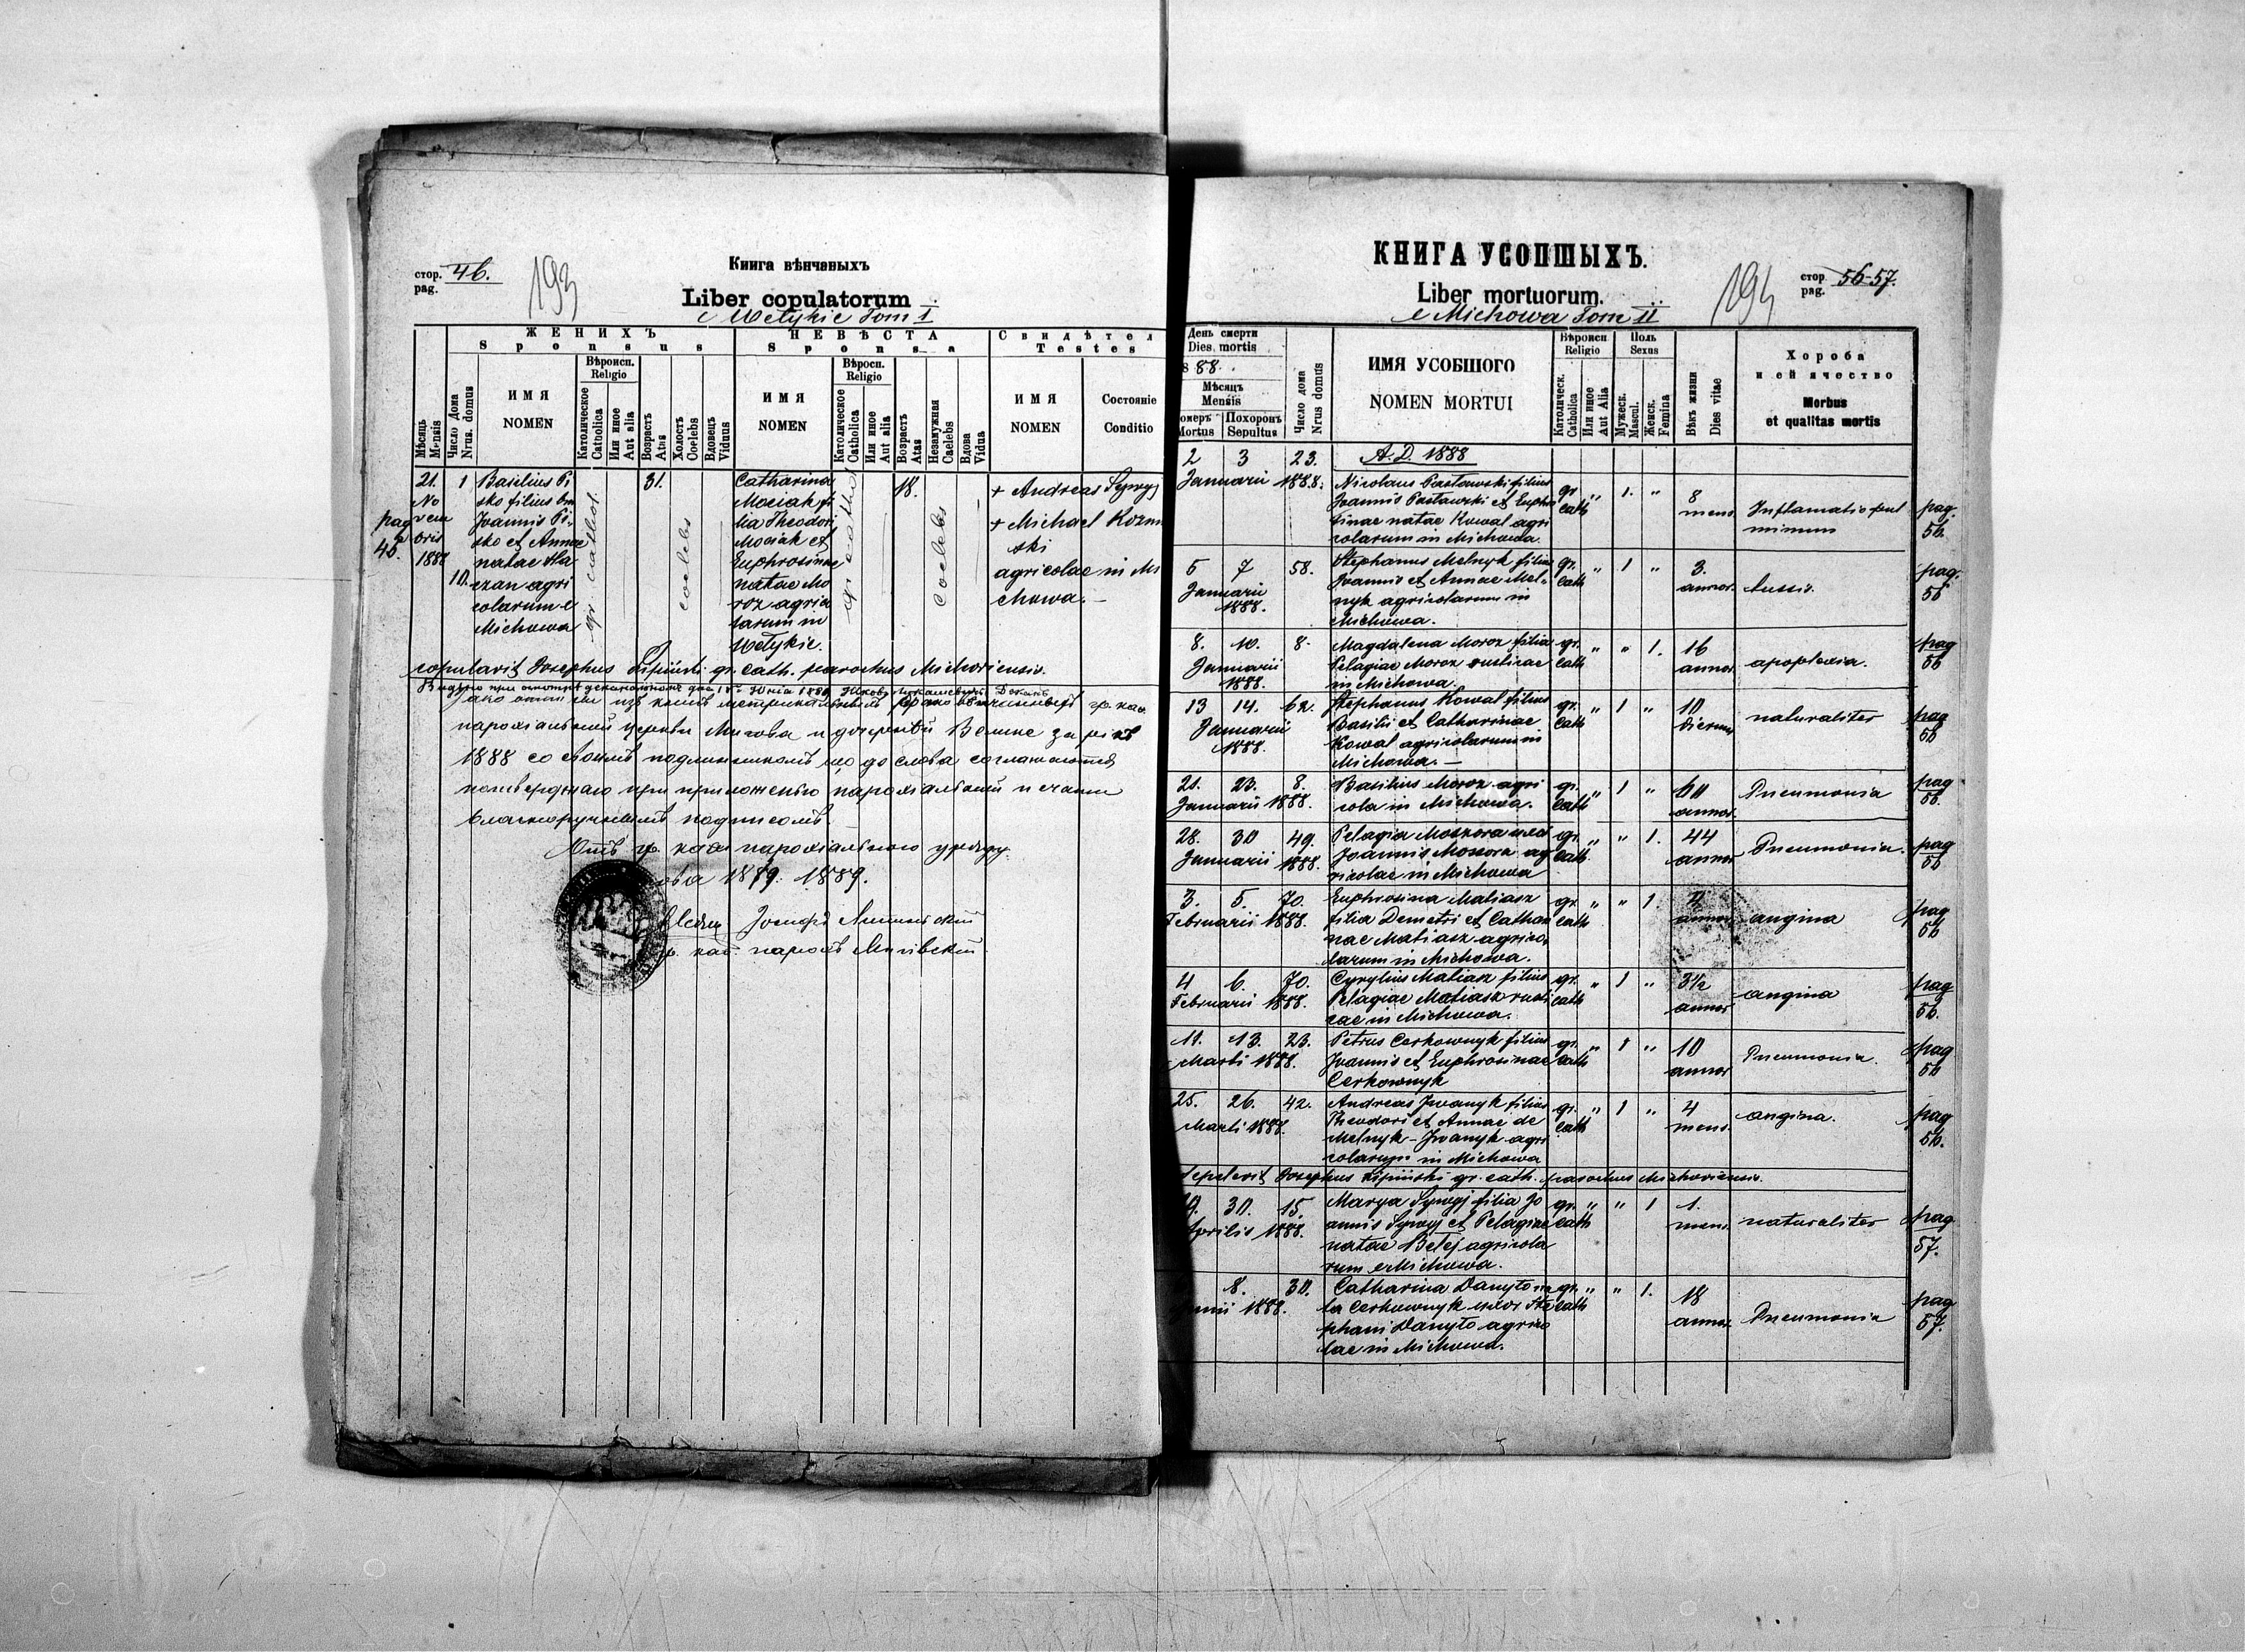 стор. 46.
pag.
193
Книга вѣнчаныхъ
Liber copulatorum
e Wełykie Tom I
ЖЕНИХЪ
Sponsus
НЕВѢСТА
Sponsa
Свидѣтел
Testes
Мѣсяць
Mensis
Число Дома
Nrus. domus
ИМЯ
NOMEN
Вѣроисп.
Religio
Католическое
Catholica
Или иное
Aut alia
Возрастъ
Atas
Холостъ
Coelebs
Вдовець
Viduus
ИМЯ
NOMEN
Вѣросп.
Religio
Католическое
Catholica
Или иное
Aut alia
Возрастъ
Atas
Незамужная
Caelebs
Вдова
Vidua
ИМЯ
NOMEN
Состояніе
Conditio
pag
46.
21.
No
vem
bris
1888
1
10.
Basilius Pi
sko filius
Joannis Pi-
sko et Annae
natae Ha
czan agri
colarum e
Michowa
gr. cathol.
31.
coelebs
Catharina
Mociak fi
lia Theodori
Mociak et
Euphrosinae
natae Mo
roz agrico
larum in
Wełykie.
gr. cathol.
18.
coelebs
+ Andreas Sywyj
+ Michael Kozm
ski
agricolae in Mi
chowa.—
copulavit Josephus Lipiński gr. cath. parochus Michoviensis.
парохіальной церкви Михова и дочерной Велике за рокъ
1888 со своимъ подлинникомъ що до слова соглашаются
потверджаю при приложенію парохіальной печати
власноручнымъ подписомъ.
Отъ гр. кат. парохіального уряду
ова 18/9. 1889.
Іосифъ Липинскій
гр. кат. парохъ Миховскій
КНИГА УСОПШЫХЪ.
Liber mortuorum.
e Michowa Tom II
194
стор. 56-57.
pag.
День смерти
Dies mortis
88.
Мѣсяцъ
Mensis
омеръ
Mortus
Похоронъ
Sepultus
Число дома
Nrus domus
ИМЯ УСОБШОГО
NOMEN MORTUI
Вѣроисп.
Religio
Католическ.
Catholica
Или иное
Aut Alia
Полъ
Sexus
Мужеск.
Mascul.
Женск.
Femina
Вѣкъ жизни
Dies vitae
Хороба
и ей ячество
Morbus
et qualitas mortis
A.D. 1888
2 3 23.
Januarii 1888.
Nicolaus Pastawski filius
Joannis Pastawski et Euphro
sinae natae Kowal agri
colarum in Michowa.
gr. cath. „ 1. „ 8 mens.
Inflamatio pul
minum
pag. 56.
5 7 58.
Januarii
1888.
Stephanus Melnyk filius
Joannis et Annae Mel-
nyk agricolarum in
Michowa.
gr. cath „ 1 „ 3. annor. tussis.
pag. 56
8. 10. 8.
Januarii
1888.
Magdalena Moroz filia
Pelagiae Moroz rusticae
in Michowa.
gr. cath „ „ 1. 16 annor. apoplexia.
pag 56
13 14. 62.
Januarii
1888.
Stephanus Kowal filius
Basilii et Catharinae
Kowal agricolarum in
Michowa.—
gr. cath „ 1 „ 10 dierum naturaliter
pag 56
21. 23. 8.
Januarii 1888.
Basilius Moroz agri
cola in Michowa.
gr. cath „ 1 „ 60 annor. Pneumonia
pag 56.
28. 30 49.
Januarii 1888.
Pelagia Moskora uxor
Joannis Moskora ag
ricolae in Michowa
gr. cath. „ „ 1. 44 annor Pneumonia.
pag 56
3. 5. 70.
Februarii 1888.
Euphrosina Matiasz
filia Demetri et Cathari
nae Matiasz agrico
larum in Michowa.
gr. cath „ „ 1 annor angina
pag 56
4 6. 70.
Februarii 1888.
Cyrylius Matiasz filius
Pelagiae Matiasz rusti
cae in Michowa.
gr. cath „ 1 „ 3½ annor angina
pag 56.
11. 13. 23.
Marti 1888.
Petrus Cerkownyk filius
Joannis et Euphrosinae
Cerkownyk
gr. cath „ 1 „ 10 annor Pneumonia.
pag 56
25. 26. 42.
Marti 1888.
Andreas Iwanyk filius
Theodori et Annae de
Melnyk - Iwanyk agri
colarum in Michowa
gr. cath „ 1 „ 4 mens. angina.
pag 56.
Sepelivit Josephus Lipiński gr. cath. parochus Michoviensis.
9. 30. 15.
Aprilis 1888.
Marya Sywyj filia Jo
annis Sywyj et Pelagiae
natae Betej agricola
rum e Michowa.
gr. cath „ „ 1 1. mens. naturaliter
pag 57.
8. 30.
1888.
Catharina Danyło na
ta Cerkownyk uxor Ste
phani Danyło agrico
lae in Michowa.
gr. cath „ „ 1. 18 annor. Pneumonia
pag 57.